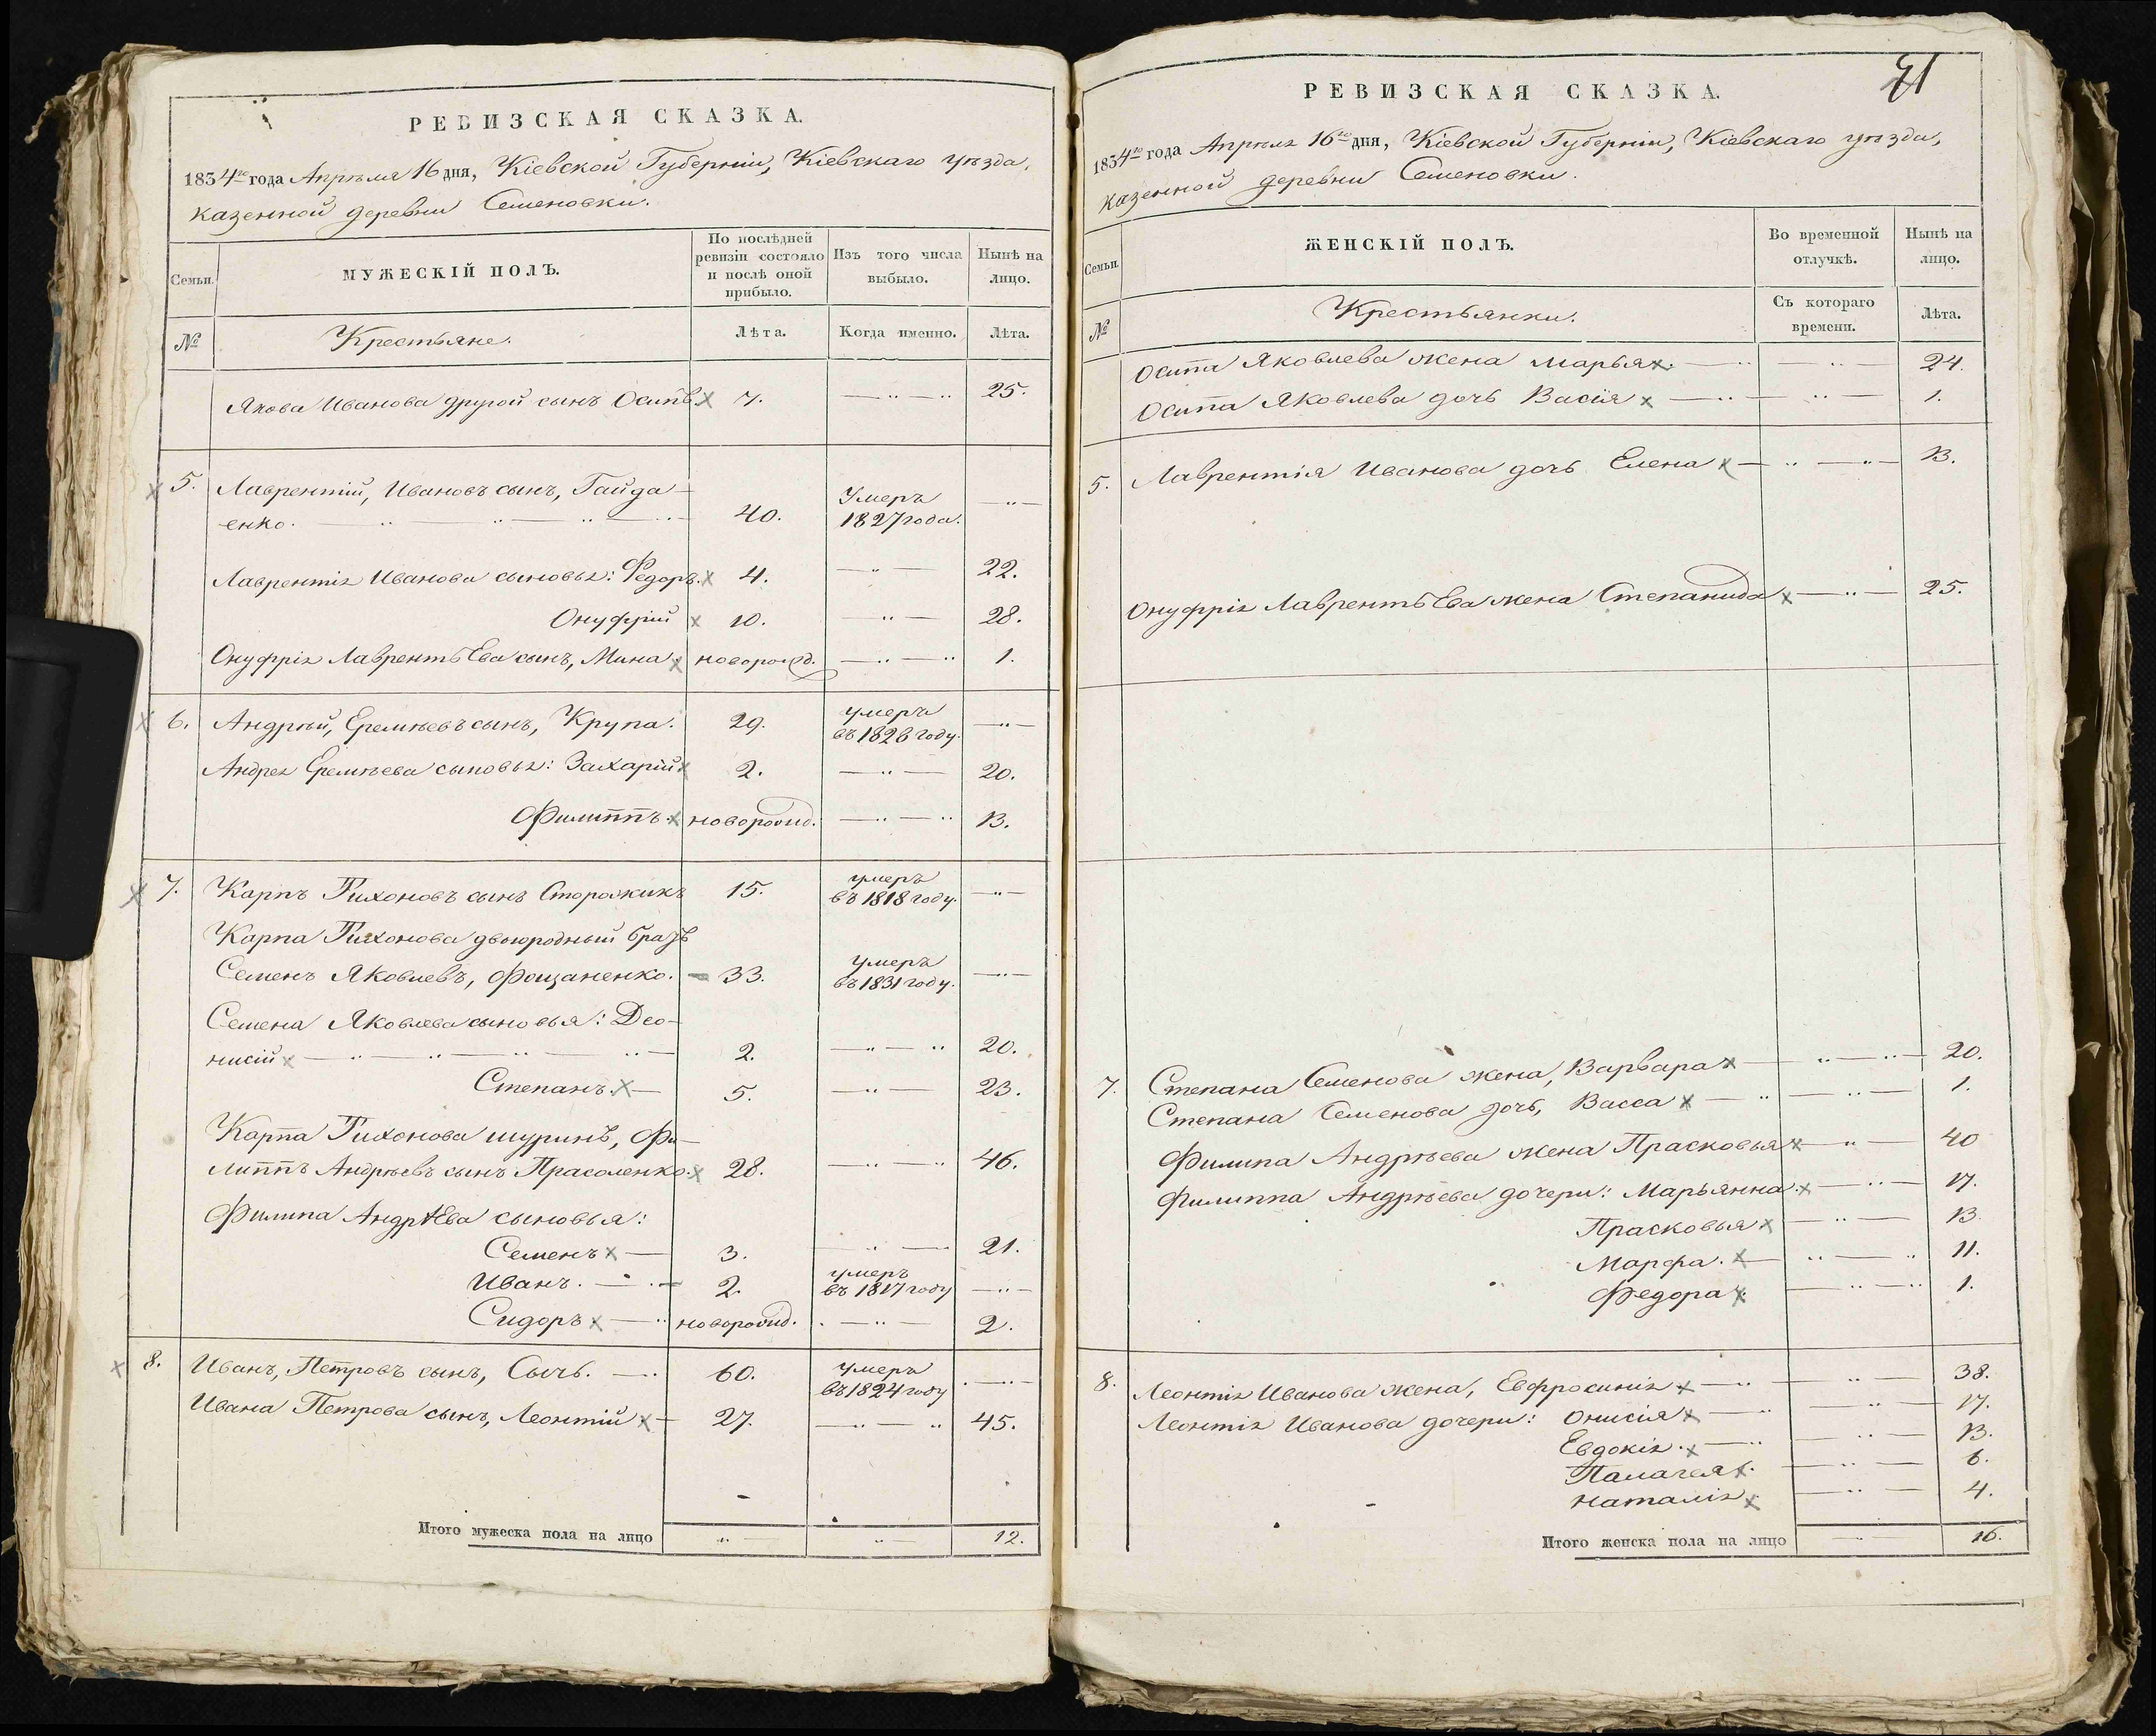 РЕВИЗСКАЯ СКАЗКА.
1834го года Апрѣля 16 дня, Кіевской Губерніи, Кіевскаго уѣзда,
казенной деревни Семеновки.
Семьи.
МУЖЕСКІЙ ПОЛЪ.
По послѣдней
ревизіи состояло
и послѣ оной
прибыло.
Изъ того числа
выбыло.
Нынѣ на
лицо.
№
Крестьяне.
Лѣта.
Когда именно.
Лѣта.
Якова Иванова другой сынъ Осипъ x 7. 25.
x 5. Лаврентій, Ивановъ сынъ, Гайда-
енко. 40. Умеръ 1827 года.
Лаврентія Иванова сыновья: Федоръ. x 4. 22.
Онуфрій x 10. 28.
Онуфрія Лаврентьева сынъ, Мина x новорожд. 1.
x 6. Андрѣй, Еремѣевъ сынъ, Крупа. 29. умеръ въ 1826 году.
Андрея Еремѣева сыновья: Захарій x 2. 20.
Филиппъ. x новорожд. 13.
x 7. Карпъ Тихоновъ сынъ Сторожикъ 15. умеръ въ 1818 году.
Карпа Тихонова двоюродный братъ
Семенъ Яковлевъ, Фощаненко. 33. умеръ въ 1831 году.
Семена Яковлева сыновья: Део-
нисій x 2. 20.
Степанъ. x 5. 23.
Карпа Тихонова шуринъ, Фи-
липпъ Андрѣевъ сынъ Прасоленко. x 28. 46.
Филипа Андрѣева сыновья:
Семенъ x 3. 21.
Иванъ. 2. умеръ въ 1817 году
Сидоръ x новорожд. 2.
x 8. Иванъ, Петровъ сынъ, Сычъ. 60. умеръ въ 1824 году
Ивана Петрова сынъ, Леонтій x 27. 45.
Итого мужеска пола на лицо 12.
41
РЕВИЗСКАЯ СКАЗКА.
1834го года Апрѣля 16го дня, Кіевской Губерніи, Кіевскаго уѣзда,
казенной деревни Семеновки.
Семьи.
ЖЕНСКІЙ ПОЛЪ.
Во временной
отлучкѣ.
Нынѣ на
лицо.
№
Крестьянки.
Съ котораго
времени.
Лѣта.
Осипа Яковлева жена Марья x. 24.
Осипа Яковлева дочь Васія x 1.
5. Лаврентія Иванова дочь Елена x 13.
Онуфрія Лаврентьева жена Степанида x 25.
7. Степана Семенова жена, Варвара x 20.
Степана Семенова дочь, Васса x 1.
Филипа Андрѣева жена Прасковья x 40
Филиппа Андрѣева дочери: Марьянна. x 17.
Прасковья x 13.
Марфа. x 11.
Федора x. 1.
8. Леонтія Иванова жена, Евфросинія x 38.
Леонтія Иванова дочери: Онисія x 17.
Евдокія. x 13.
Палагея x. 6.
Наталія x 4.
Итого женска пола на лицо 16.